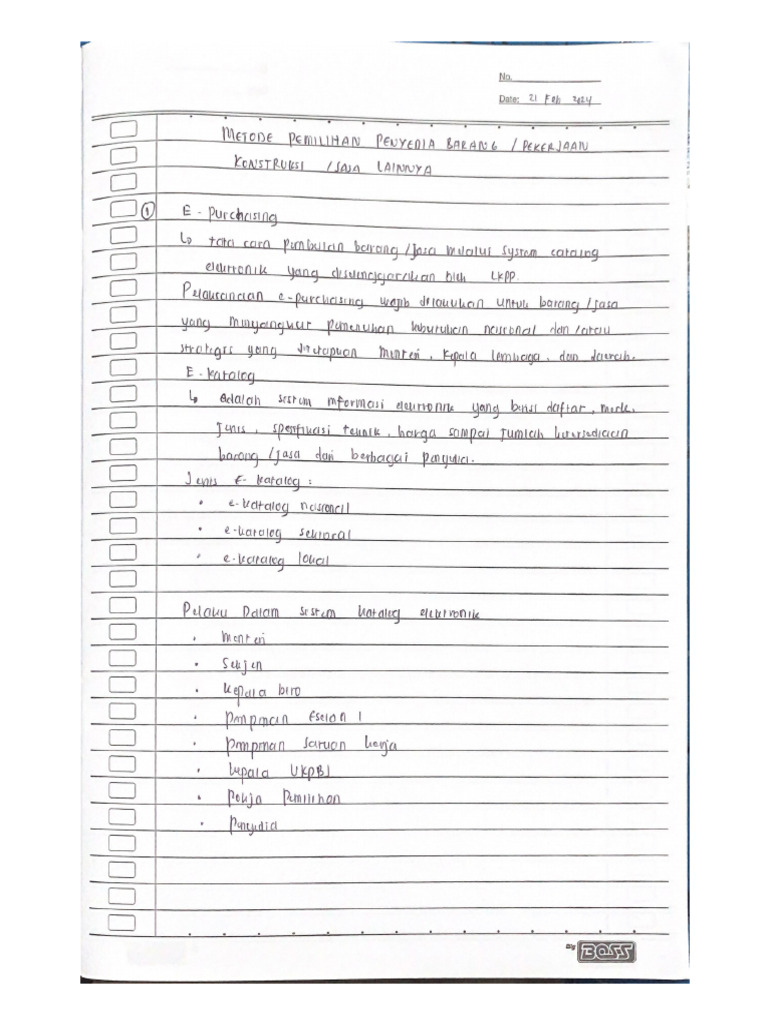 No.
Date: 21 Feb 2024
METODE PEMILIHAN PENYEDIA BARANG / PEKERJAAN
KONSTRUKSI / JASA LAINNYA
① E - Purchasing
↳ tata cara pembelian barang / jasa melalui system catalog
elektronik yang diselenggarakan oleh LKPP.
Pelaksanaan e-purchasing wajib dilakukan untuk barang / jasa
yang menyangkut pemenuhan kebutuhan nasional dan / atau
strategis yang ditetapkan menteri, kepala lembaga, dan daerah.
E - Katalog
↳ adalah sistem informasi elektronik yang berisi daftar, merk,
jenis, spesifikasi teknik, harga sampai jumlah ketersediaan
barang / jasa dari berbagai penyedia.
Jenis E - Katalog :
• e-katalog nasional
• e-katalog sektoral
• e-katalog lokal
Pelaku Dalam sistem katalog elektronik
• Menteri
• Sekjen
• Kepala biro
• pimpinan Eselon 1
• pimpinan satuan kerja
• kepala UKPBJ
• Pokja Pemilihan
• Penyedia
By BOSS